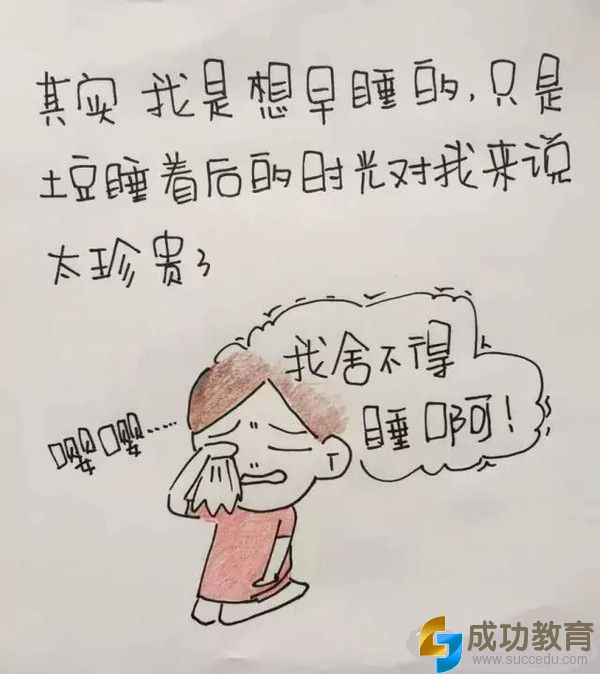 其实 我是想早睡的，只是
土豆睡着后的时光对我来说
太珍贵了
我舍不得
睡啊！
嘤嘤……
成功教育
www.succedu.com